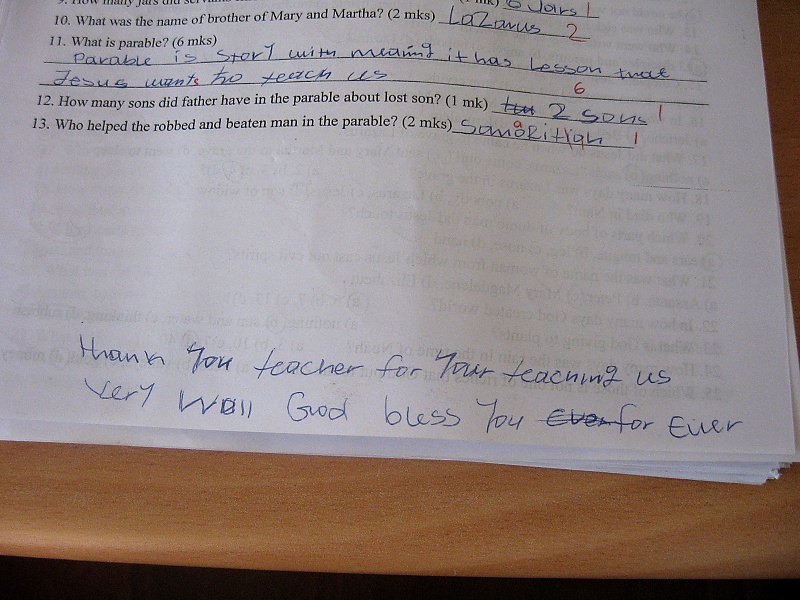 9. How many jars did serv (1 mk) 6 Jars 1
10. What was the name of brother of Mary and Martha? (2 mks) Lazarus 2
11. What is parable? (6 mks)
Parable is story with meaning it has Lesson that
Jesus wants to teach us
6
12. How many sons did father have in the parable about lost son? (1 mk) 2 sons 1
13. Who helped the robbed and beaten man in the parable? (2 mks) 1
thank you teacher for your teaching us
very well God bless you Ever for Ever